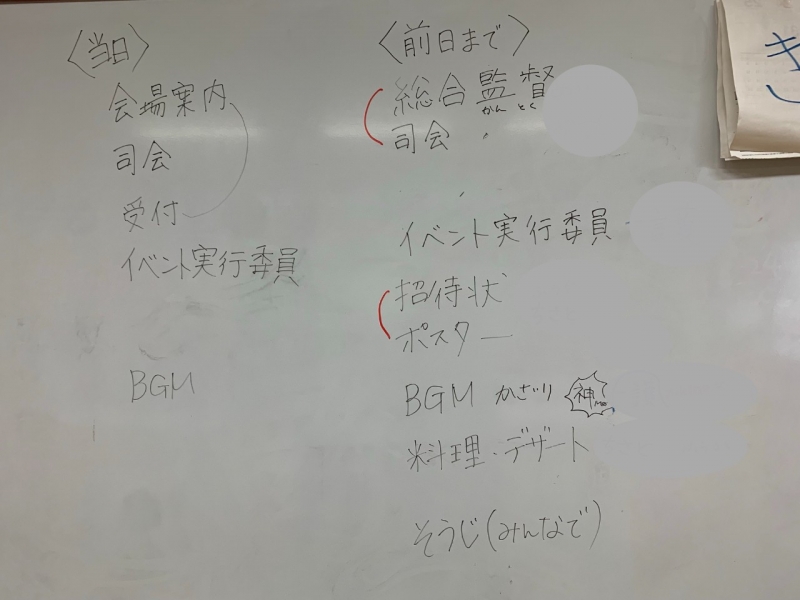 〈当日〉
会場案内
司会
受付
イベント実行委員
BGM
〈前日まで〉
総合監督
かんとく
司会
イベント実行委員
招待状
ポスター
BGM かざり 神!
料理・デザート
そうじ(みんなで)
き